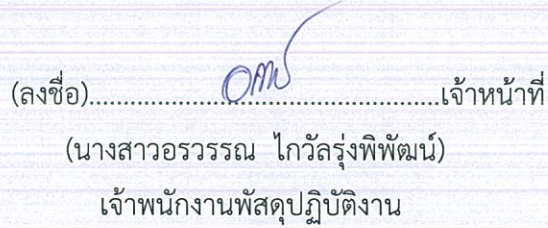 (ลงชื่อ)..........................................เจ้าหน้าที่
(นางสาวอรวรรณ ไกวัลรุ่งพิพัฒน์)
เจ้าพนักงานพัสดุปฏิบัติงาน